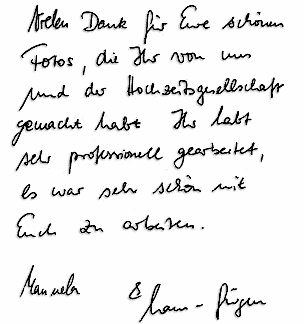 Vielen Dank für Eure schönen
Fotos, die Ihr von uns
und der Hochzeitsgesellschaft
gemacht habt Ihr habt
sehr professionell gearbeitet,
es war sehr schön mit
Euch zu arbeiten.
Manuela & Hans-Jürgen